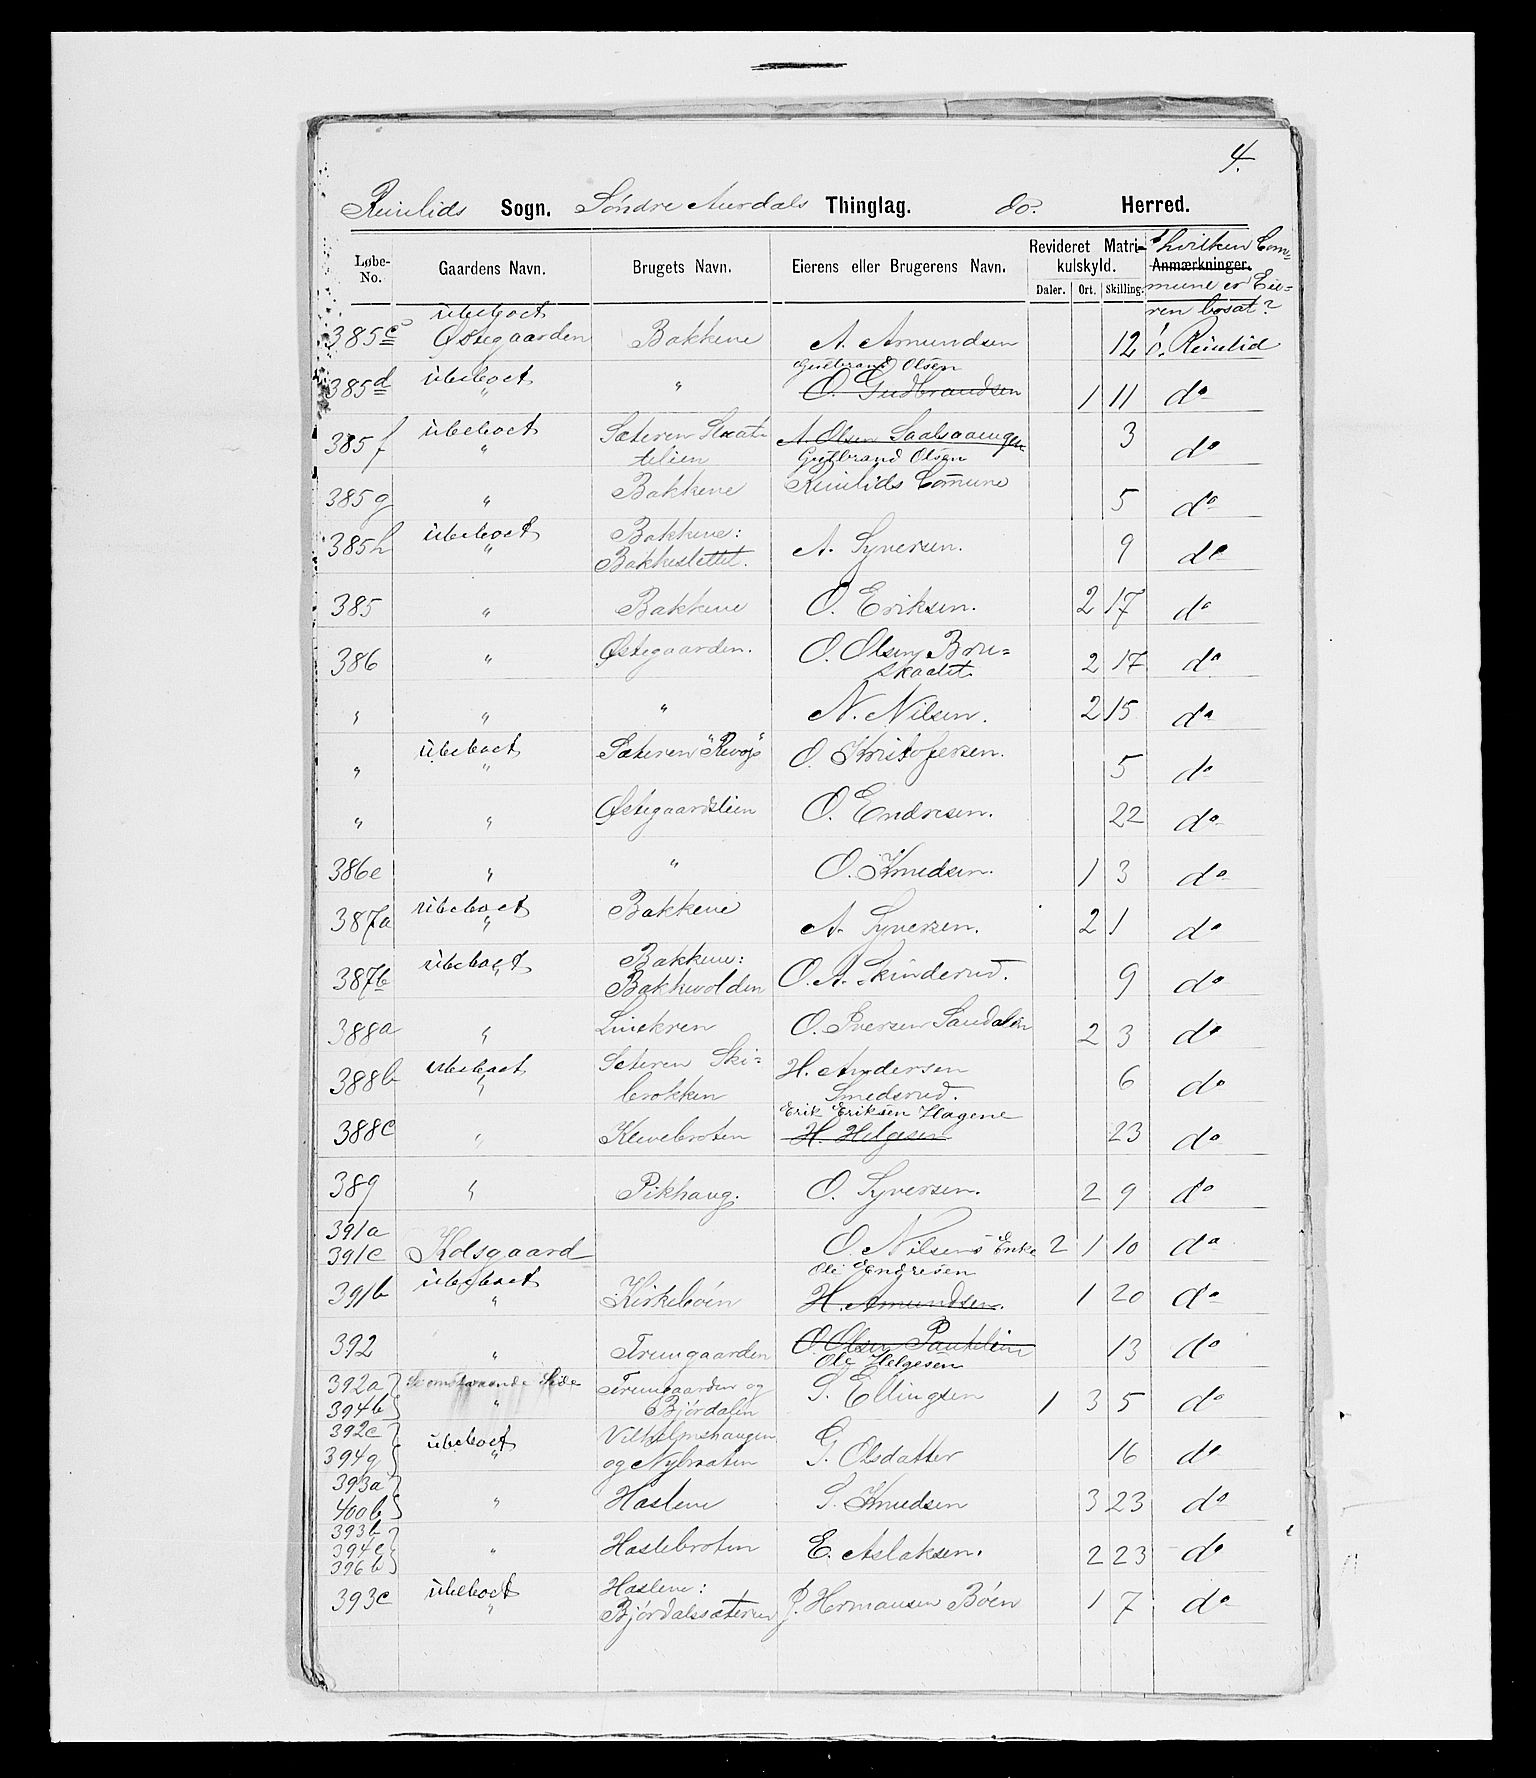 4.
Reinlids Sogn. Søndre Aurdals Thinglag. do. Herred.
Løbe-No. Gaardens Navn. Brugets Navn. Eierens eller Brugerens Navn. Revideret Matrikulskyld. Daler. Ort. Skilling. Anmærkninger. I hvilken Commune er Eieren bosat?
385c ubeboet Østegaarden Bakkene A. Amundsen 12 i Reinlid
385d ubeboet " " Gulbrand Olsen O. Gudbrandsen 1 11 do
385f ubeboet " Sæteren tilien A. Olsen Gulbrand Olsen 3 do
385g " Bakkene Reinlids Commune 5 do
385h ubeboet " Bakkene: Bakkeslettet. A. Syversen. 9 do
385 " Bakkene O. Eriksen. 2 17 do
386 " Østegaarden. O. Olsen Bruskadet 2 17 do
" " " N. Nilsen. 2 15 do
" ubeboet " Sæteren O. Kristofersen. 5 do
" " Østegaardslien O. Endresen. 22 do
386e " " O. Knudsen. 1 3 do
387a ubeboet " Bakkene A. Syversen. 2 1 do
387b ubeboet " Bakkene: Bakkevolden O. A. Skinderud. 9 do
388a " O. Iversen 2 3 do
388b ubeboet " Seteren Skibrokken H. Andersen Smedsrud. 6 do
388c " Klevebroten Erik Eriksen Hagene H. Helgesen 23 do
389 " Pikhaug. O. Syversen. 2 9 do
391a 391c Kolsgaard O. Nilsens Enke 2 1 10 do
391b ubeboet " Kirkebøen Ole Endresen H. Amundsen. 1 20 do
392 " Trungaarden O. Olsen Ole Helgesen 13 do
392a 394b Se omstaaende Side " Trungaarden og Bjørdalen G. Ellingsen 1 3 5 do
392c 394g ubeboet " Vilhelmshaugen og Nybraaten G. Olsdatter 16 do
393a 400b " Haslene S. Knudsen 3 23 do
393b 394c 396b " Haslebroten E. Aslaksen. 2 23 do
393c ubeboet " Haslene: Bjørdalssæteren Hermansen Bøen 1 7 do